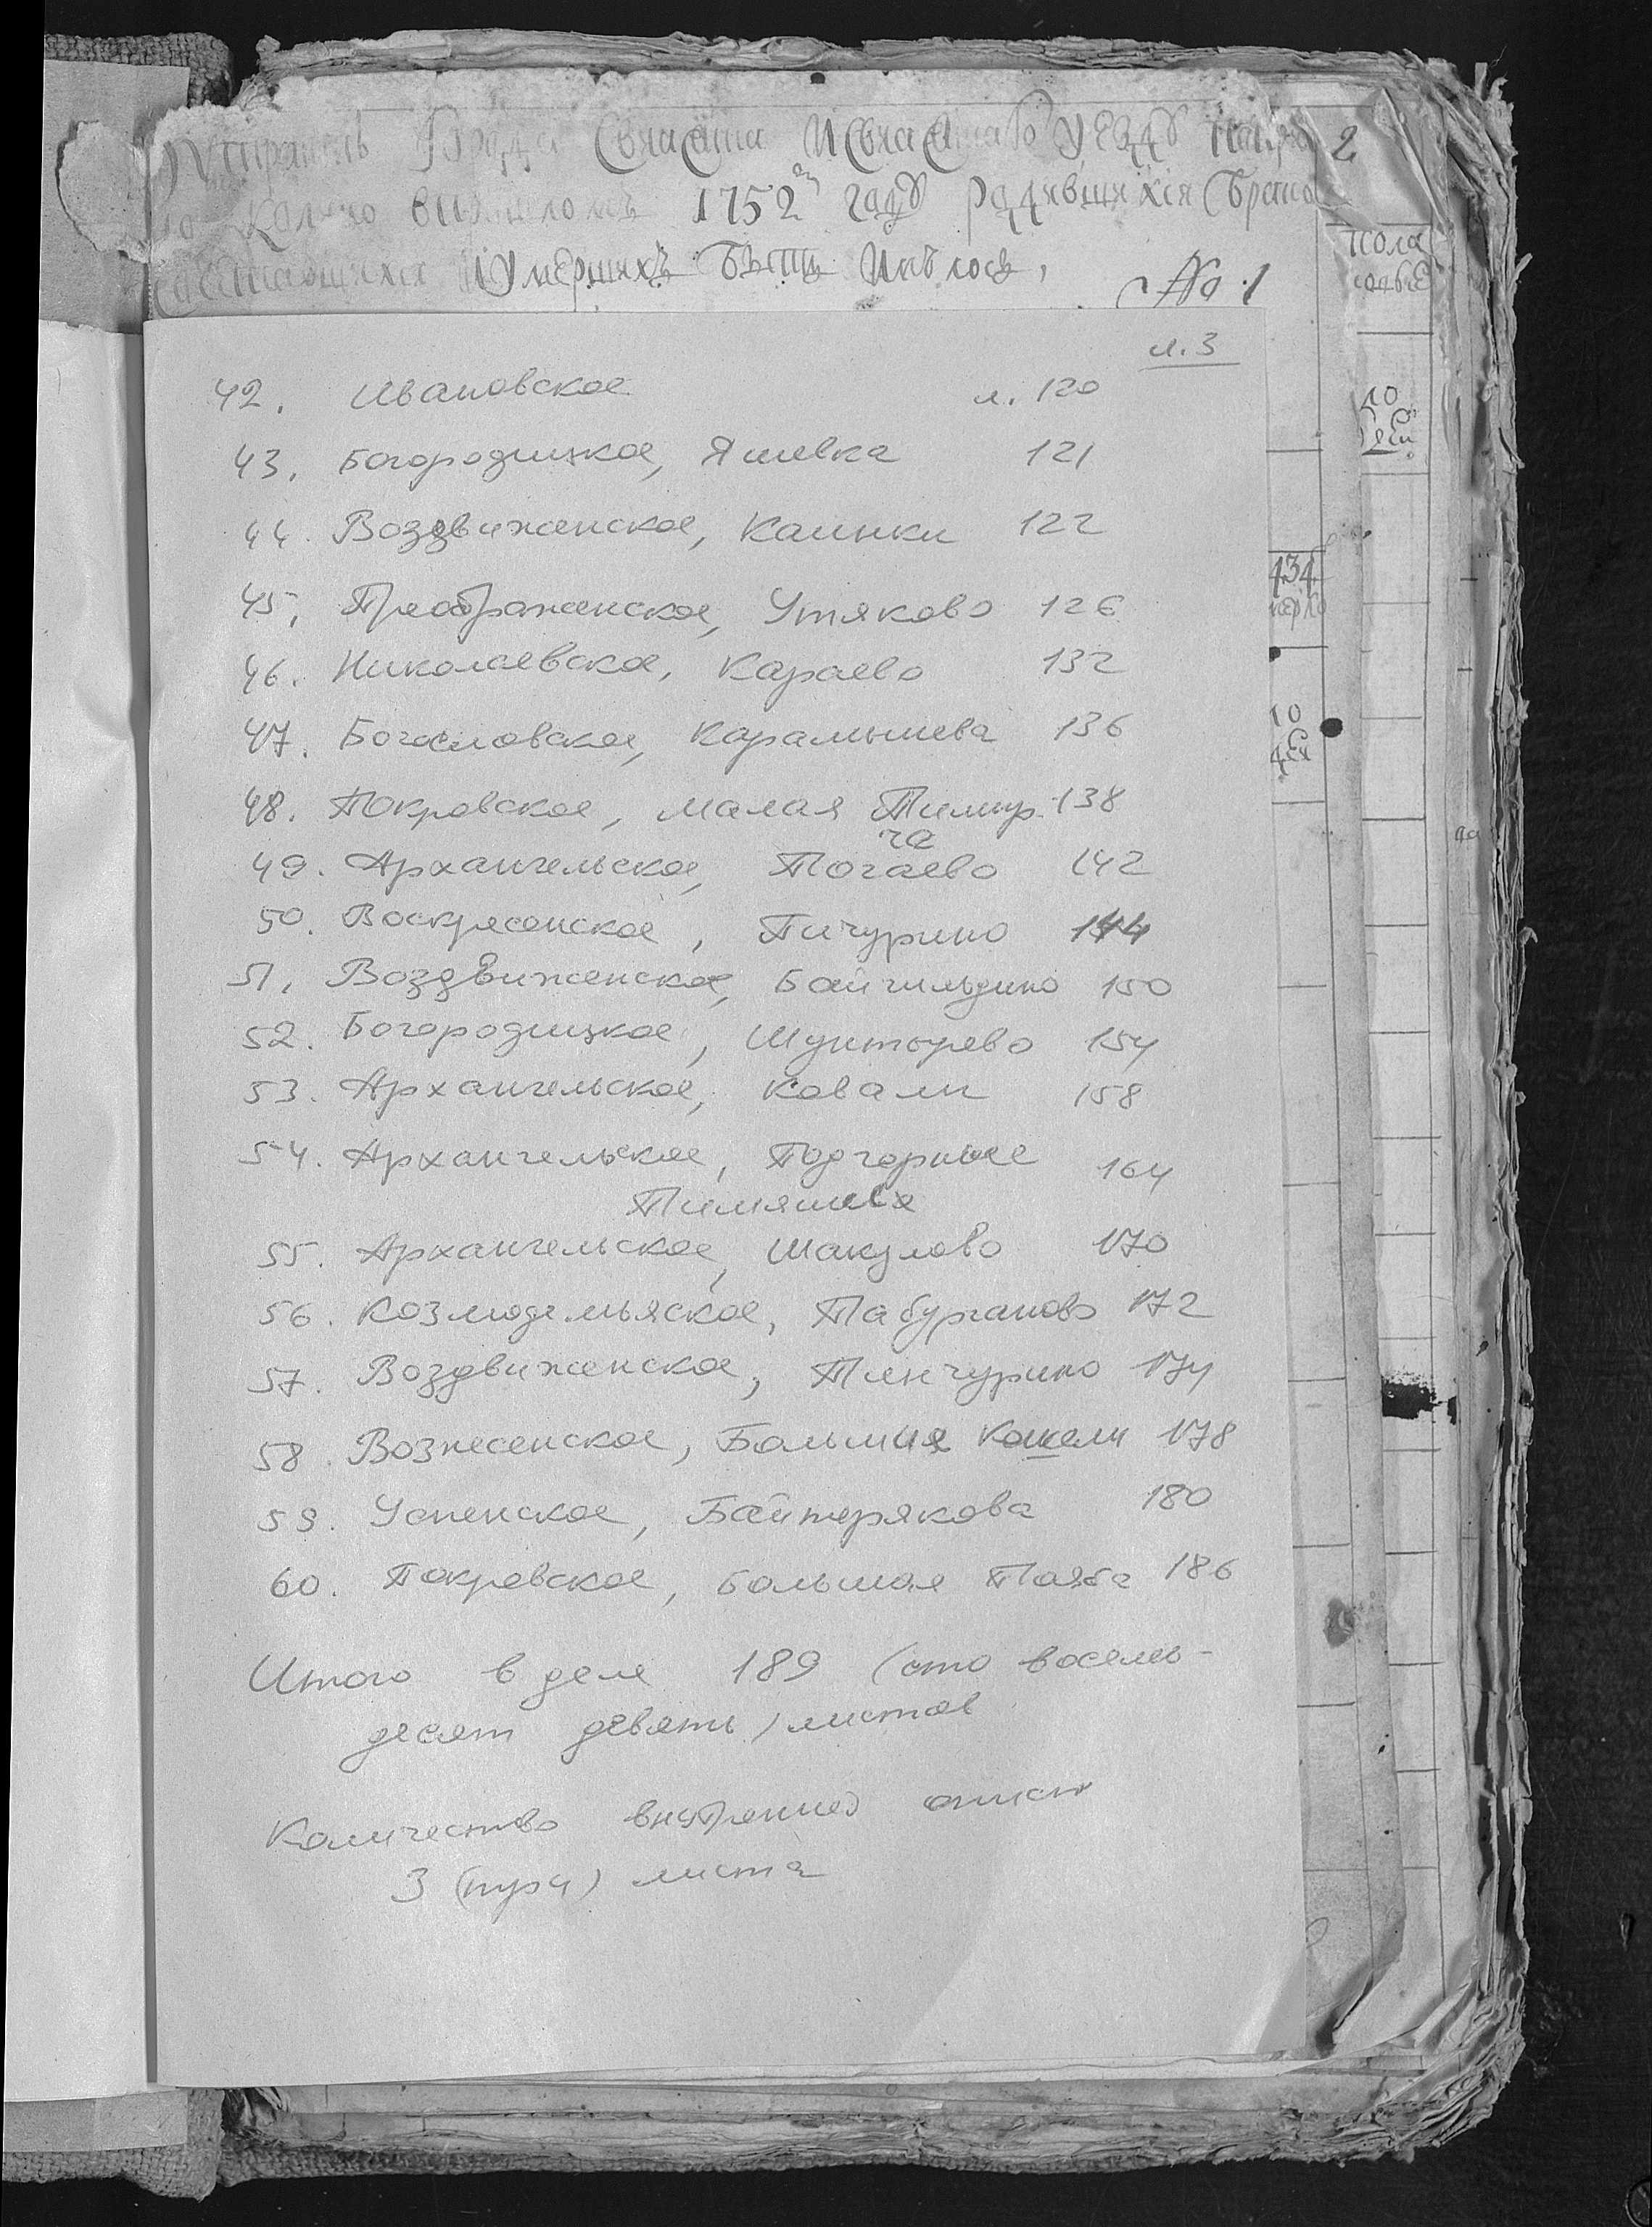 города Свияска и Свияскаго уезду
2
1752 году родившихся брако
умершихъ
№ 1
пола
л. 3
42. Ивановское л. 120
43. Богородицкое, Яшевка 121
44. Воздвиженское, Каинки 122
45. Преображенское, Утяково 126
46. Николаевское, Караево 132
47. Богословское, Карамышева 136
48. Покровское, малая Тимир 138
ча
49. Архангельское, Тогаево 142
50. Воскресенское, Пичурино 144
51. Воздвиженское, Байгильдино 150
52. Богородицкое, Шунтырево 154
53. Архангельское, Ковали 158
54. Архангельское, Подгорные 164
Тимяши
55. Архангельское, Шакулово 170
56. Козмодемьяское, Табурганово 172
57. Воздвиженское, Тенчурино 174
58. Вознесенское, Большия Кошели 178
59. Успенское, Байтерякова 180
60. Покровское, Большая Таяба 186
Итого в деле 189 (сто восемь-
десят девять) листов
Количество внутренней описи
3 (три) листа
10
434
10